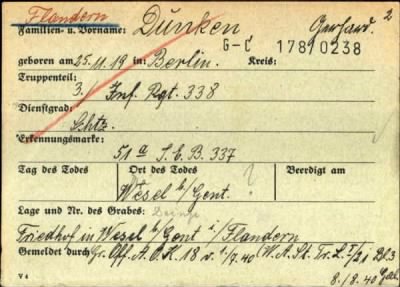 Flandern 2
Familien- u. Vorname: Dunken Gerhard.
G-C 178/0238
geboren am 25.11.19 in: Berlin. Kreis:
Truppenteil: 3. / Inf. Rgt. 338
Dienstgrad: Schtz.
Erkennungsmarke: 51 a I.E.B. 337
Tag des Todes Ort des Todes Beerdigt am
Wesel b/Gent. ?
Lage und Nr. des Grabes: Deinze
Friedhof in Wesel b/Gent i/Flandern
Gemeldet durch Gr. Off. A.O.K. 18 v. 1/7.40 (W.A.St. Tr.L. I/21 Bl.3
V 4 8.18.40